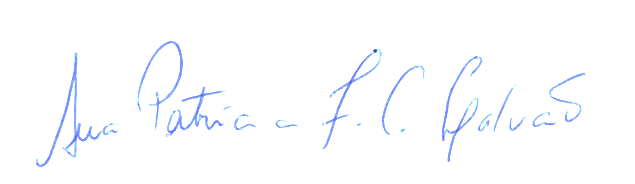 Ana Patrícia F. C. Galvão